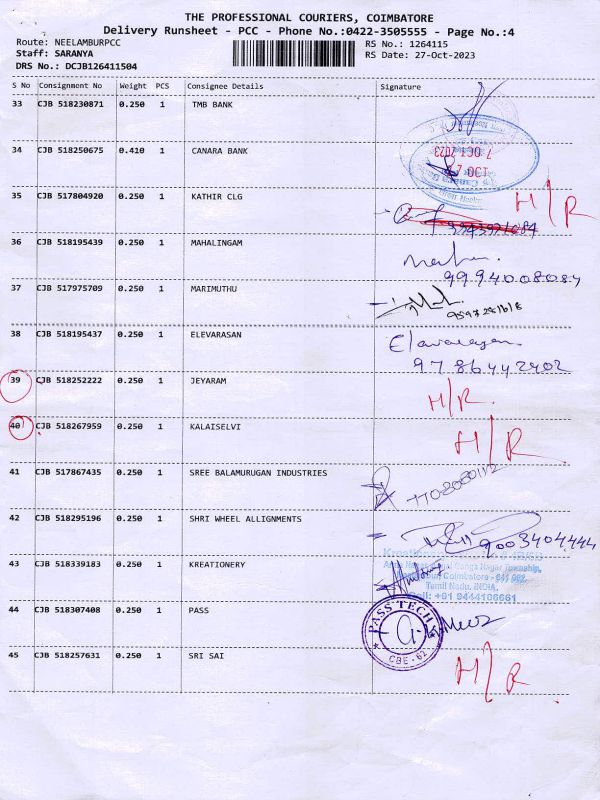 THE PROFESSIONAL COURIERS, COIMBATORE
Delivery Runsheet - PCC - Phone No.:0422-3505555 - Page No.:4
Route: NEELAMBURPCC
Staff: SARANYA
DRS No.: DCJB126411504
RS No.: 1264115
RS Date: 27-Oct-2023
S No Consignment No Weight PCS Consignee Details Signature
33 CJB 518230871 0.250 1 TMB BANK
34 CJB 518250675 0.410 1 CANARA BANK
7 OCT 2023
35 CJB 517804920 0.250 1 KATHIR CLG H/R
36 CJB 518195439 0.250 1 MAHALINGAM
9994008084
37 CJB 517975709 0.250 1 MARIMUTHU
38 CJB 518195437 0.250 1 ELEVARASAN Elavarasan
9786442402
39 CJB 518252222 0.250 1 JEYARAM H/R
40 CJB 518267959 0.250 1 KALAISELVI H/R
41 CJB 517867435 0.250 1 SREE BALAMURUGAN INDUSTRIES
42 CJB 518295196 0.250 1 SHRI WHEEL ALLIGNMENTS 9003404444
43 CJB 518339183 0.250 1 KREATIONERY
Coimbatore - 641 062,
Tamil Nadu, INDIA.
Cell: +91 9444106661
44 CJB 518307408 0.250 1 PASS
PASS TECH
CBE-62
45 CJB 518257631 0.250 1 SRI SAI H/R